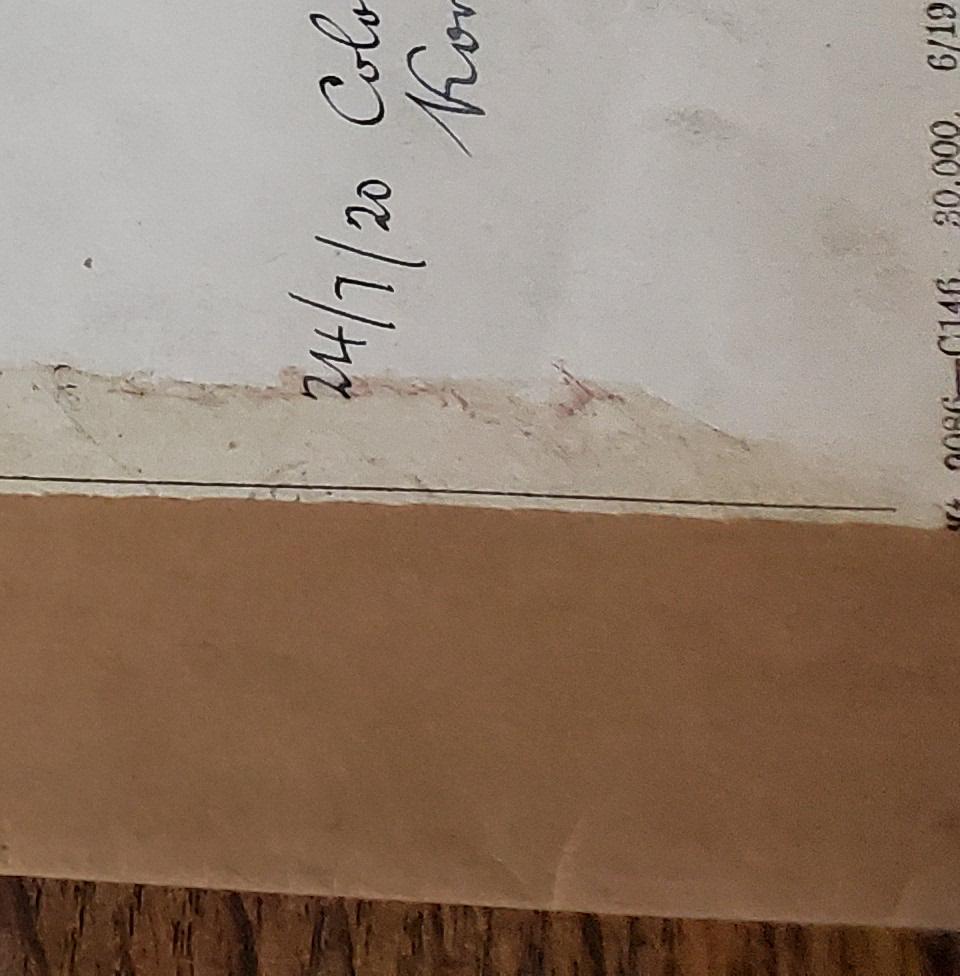 24/7/20 Colo
Kor
2086—C146. 30,000. 6/19